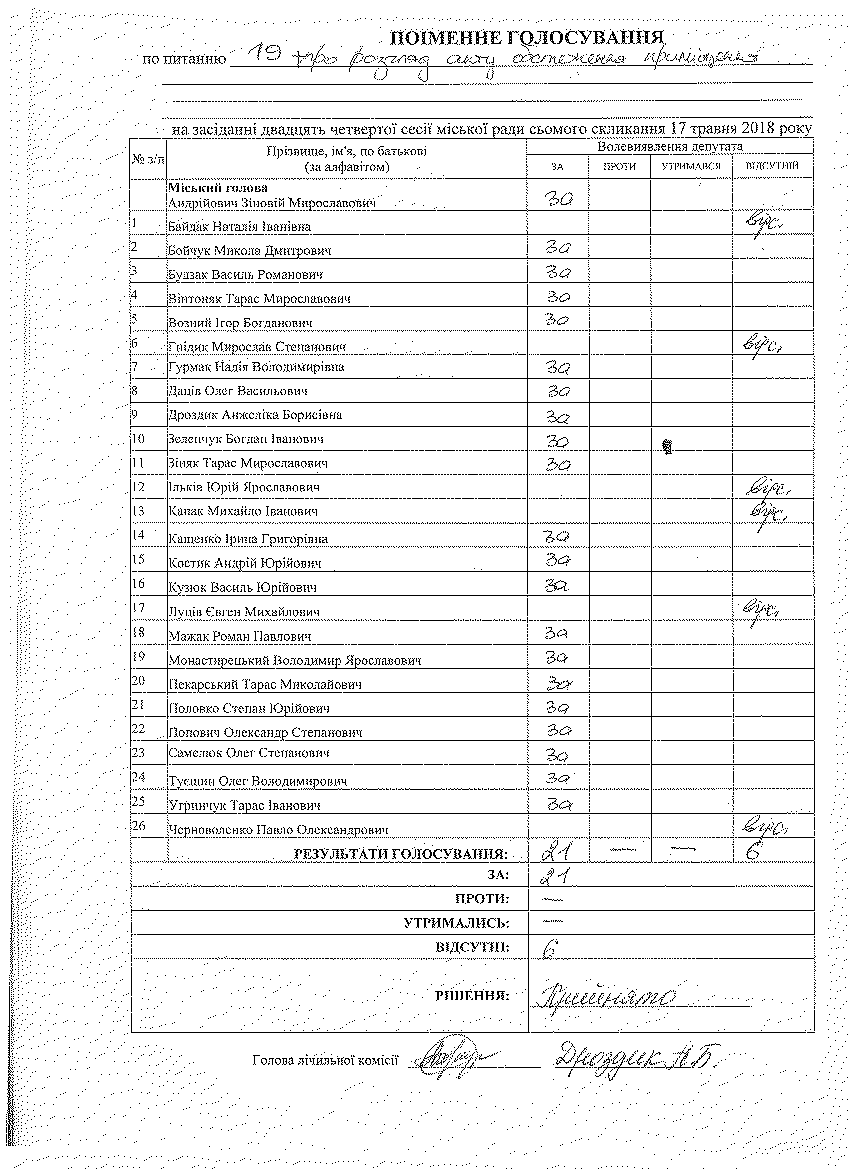 ПОІМЕННЕ ГОЛОСУВАННЯ
по питанню 19 про розгляд акту обстеження приміщення
на засіданні двадцять четвертої сесії міської ради сьомого скликання 17 травня 2018 року
№ з/п Прізвище, ім'я, по батькові (за алфавітом) Волевиявлення депутата
ЗА ПРОТИ УТРИМАВСЯ ВІДСУТНІЙ
Міський голова
Андрійович Зіновій Мирославович За
1 Байдак Наталія Іванівна відс.
2 Бойчук Микола Дмитрович За
3 Будзак Василь Романович За
4 Вінтоняк Тарас Мирославович За
5 Возний Ігор Богданович За
6 Гнідик Мирослав Степанович відс.
7 Гурмак Надія Володимирівна За
8 Даців Олег Васильович За
9 Дроздик Анжеліка Борисівна За
10 Зеленчук Богдан Іванович За
11 Зіняк Тарас Мирославович За
12 Ільків Юрій Ярославович відс.
13 Капак Михайло Іванович відс.
14 Кащенко Ірина Григорівна За
15 Костик Андрій Юрійович За
16 Кузюк Василь Юрійович За
17 Луців Євген Михайлович відс.
18 Мажак Роман Павлович За
19 Монастирецький Володимир Ярославович За
20 Пекарський Тарас Миколайович За
21 Половко Степан Юрійович За
22 Попович Олександр Степанович За
23 Самелюк Олег Степанович За
24 Туєшин Олег Володимирович За
25 Угринчук Тарас Іванович За
26 Черноволенко Павло Олександрович відс.
РЕЗУЛЬТАТИ ГОЛОСУВАННЯ: 21 — — 6
ЗА: 21
ПРОТИ: —
УТРИМАЛИСЬ: —
ВІДСУТНІ: 6
РІШЕННЯ: Прийнято
Голова лічильної комісії Дроздик А.Б.